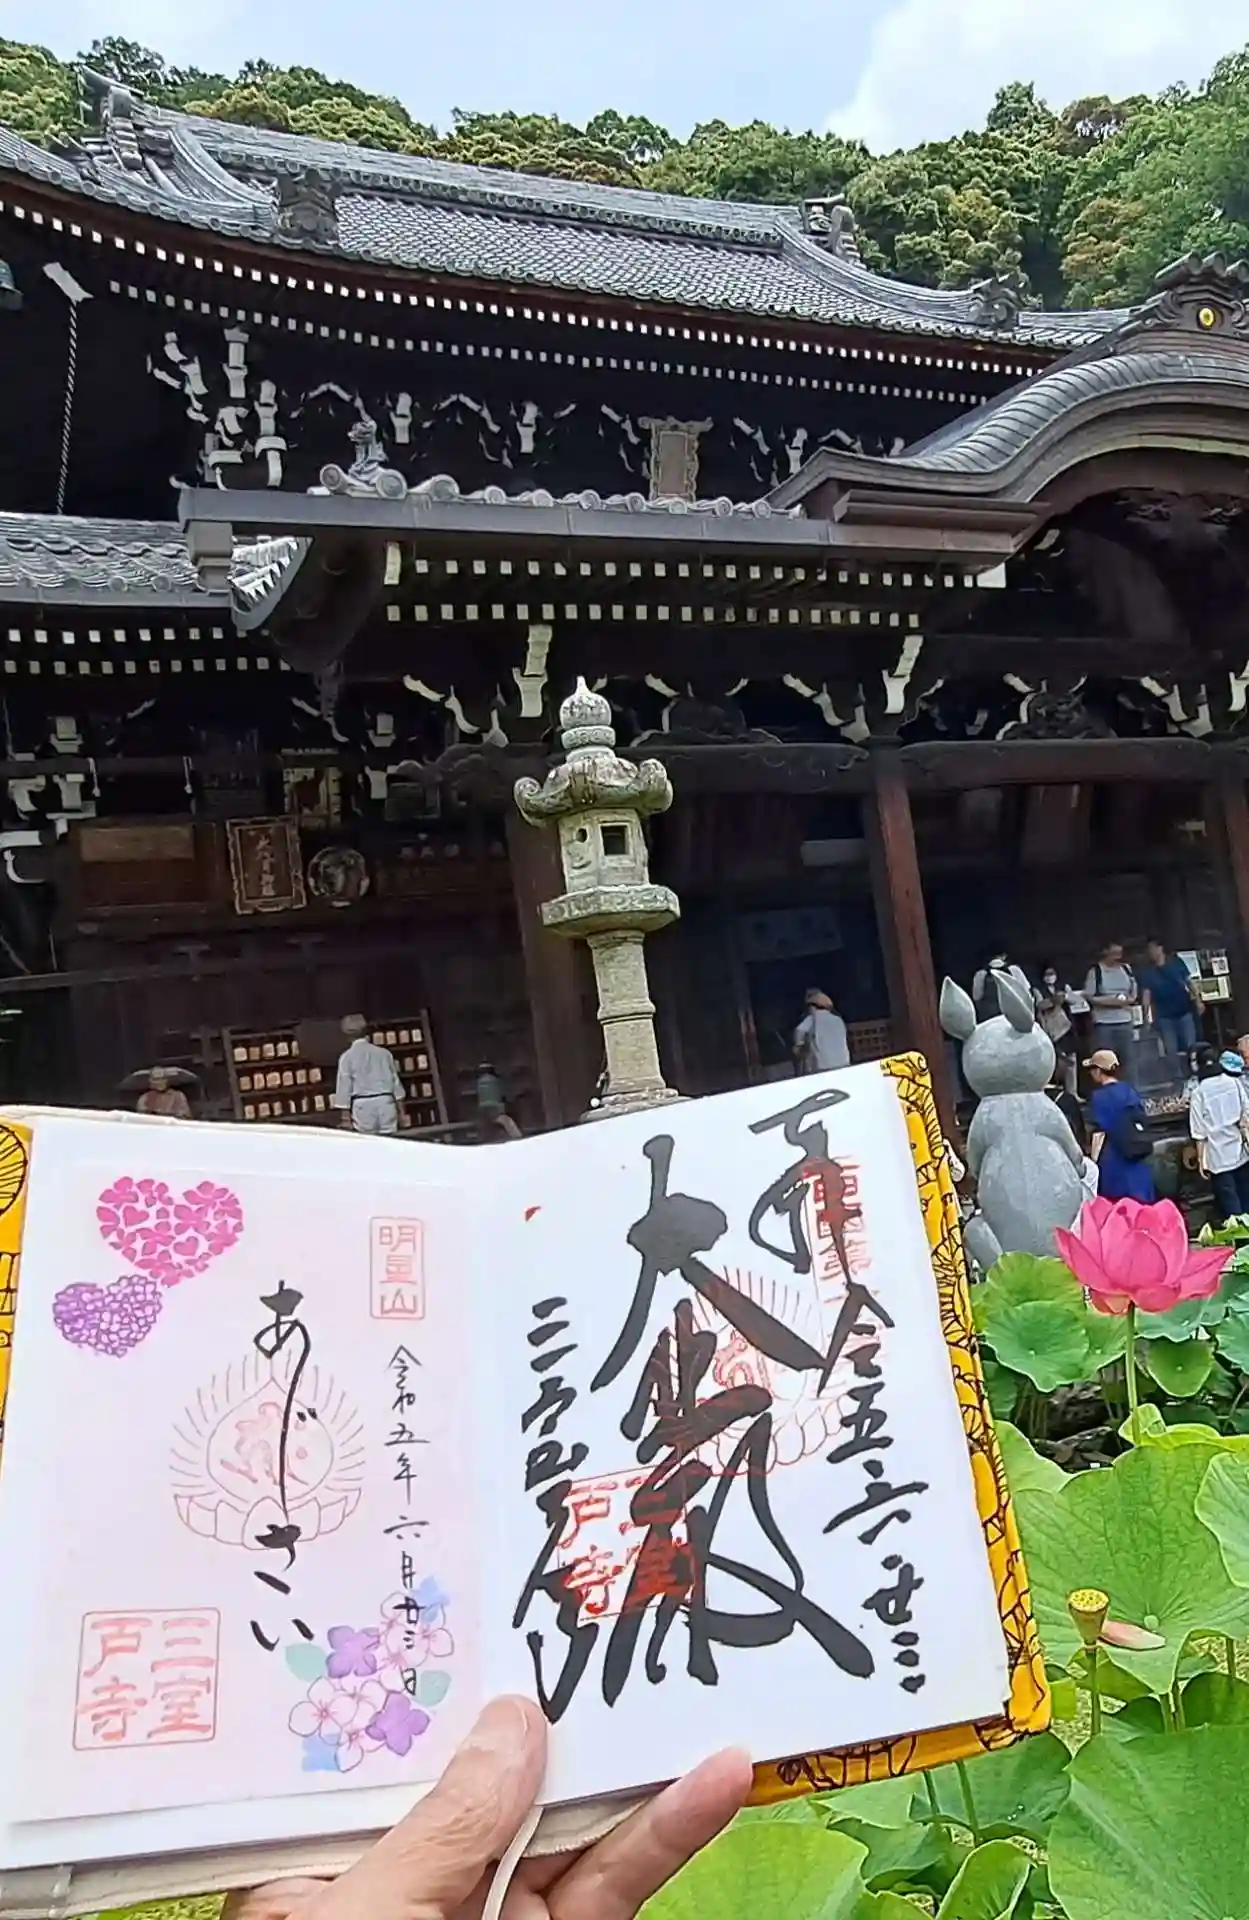 奉
令五六廿三
大悲殿
三室戸寺
三室
戸寺
明星山
令和五年六月廿三日
あじさい
三室
戸寺